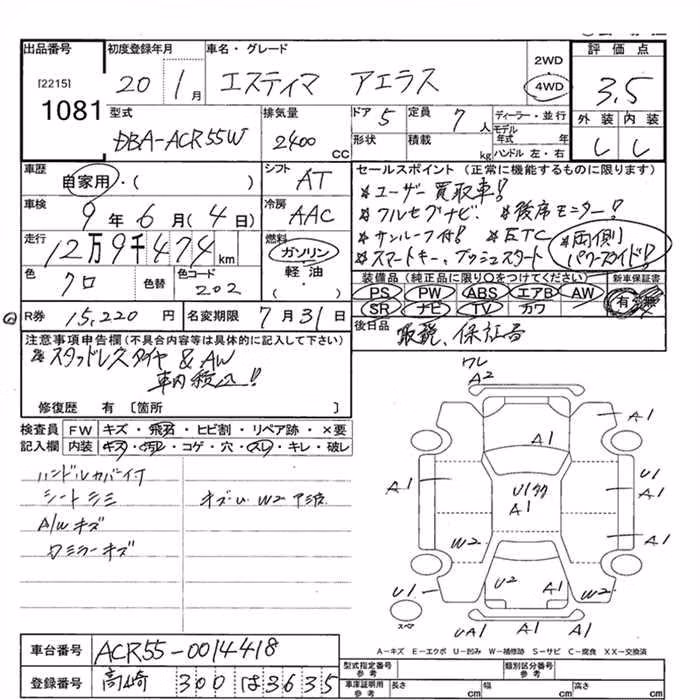 出品番号 初度登録年月 車名・グレード 評価点
[2215] 1081
20 1月 エスティマ アエラス
2WD
4WD
3.5
型式 排気量 ドア 5 定員 7人 ディーラー・並行 外装 内装
DBA-ACR55W 2400cc 形状 積載 kg モデル年式 年 ハンドル 左・右
車歴 シフト セールスポイント (正常に機能するものに限ります)
自家用・( ) AT *ユーザー買取車!!
車検 冷房 *フルセグナビ・ *後席モニター!!
9年6月(4日) AAC *サンルーフ付! *ETC *両側
走行 燃料 パワースライド!!
12万9千474km ガソリン *スマートキー、プッシュスタート
色 色替 色コード 軽油・
クロ 202 ( )
装備品 (純正品に限り○をつけてください) 新車保証書
PS PW ABS エアB AW 有・無
SR ナビ TV カワ
R券 15,220円 名変期限 7月31日 後日品 取説、保証書
注意事項申告欄(不具合内容等は具体的に記入して下さい)
*スタッドレスタイヤ&AW
車内積込!!
修復歴 有 〔箇所 〕
検査員 FW キズ・飛石・ヒビ割・リペア跡・×要
記入欄 内装 キズ・汚れ・コゲ・穴・スレ・キレ・破レ
ハンドルカバー付
シートシミ キズ・U・W2
A/Wキズ
ワレ
A2
A1
A1
A1
U1
A1
A1
A1
W2
U2
A1
W2
U1
スペア
UA1
A1
A1
A-キズ E-エクボ U-凹み W-補修跡 S-サビ C-腐食 XX-交換済
車台番号 ACR55-0014418
登録番号 高崎 300 は 3635
型式指定番号 参考 類別区分番号 参考
車庫証明用 参考 長さ cm 幅 cm 高さ cm